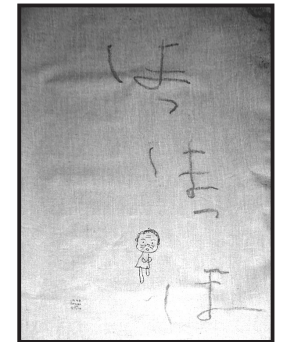 ほっほっほ